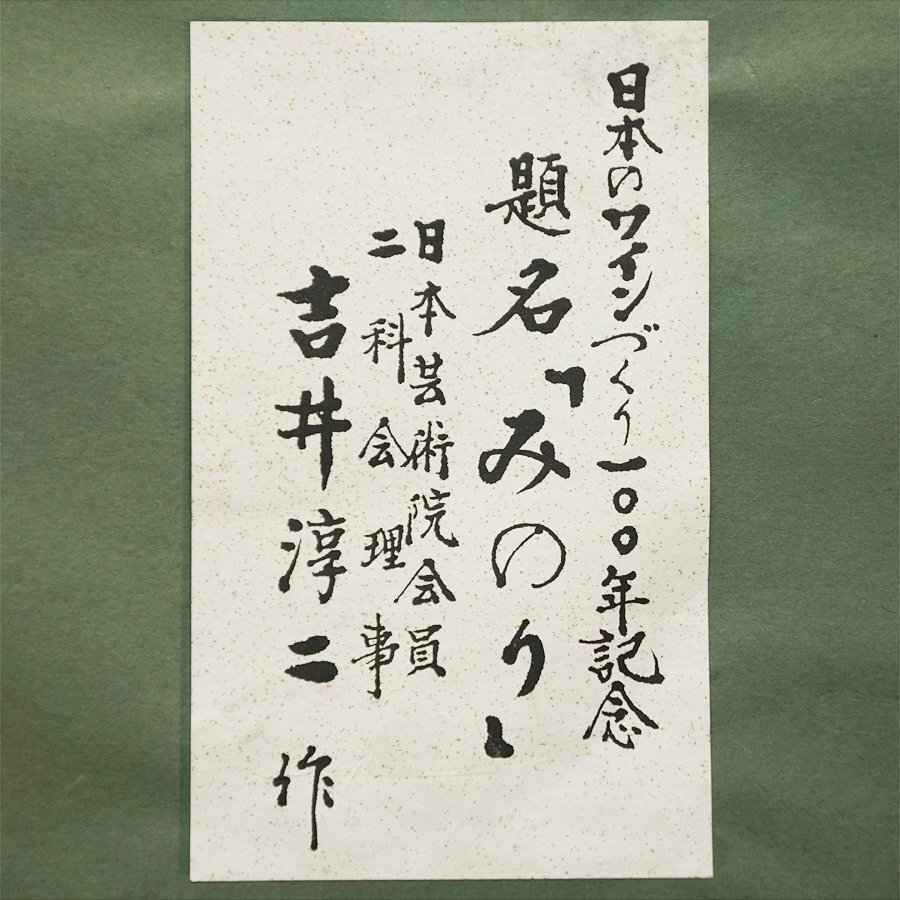 日本のワインづくり一〇〇年記念
題名「みのり」
日本芸術院会員
二科会理事
吉井淳二作